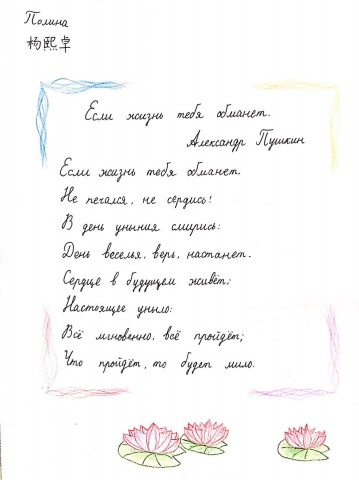 Полина
杨熙卓
Если жизнь тебя обманет.
Александр Пушкин
Если жизнь тебя обманет,
Не печался, не сердись!
В день уныния смирись:
День веселья, верь, настанет.
Сердце в будущем живёт;
Настоящее уныло:
Всё мгновенно, всё пройдёт;
Что пройдёт, то будет мило.